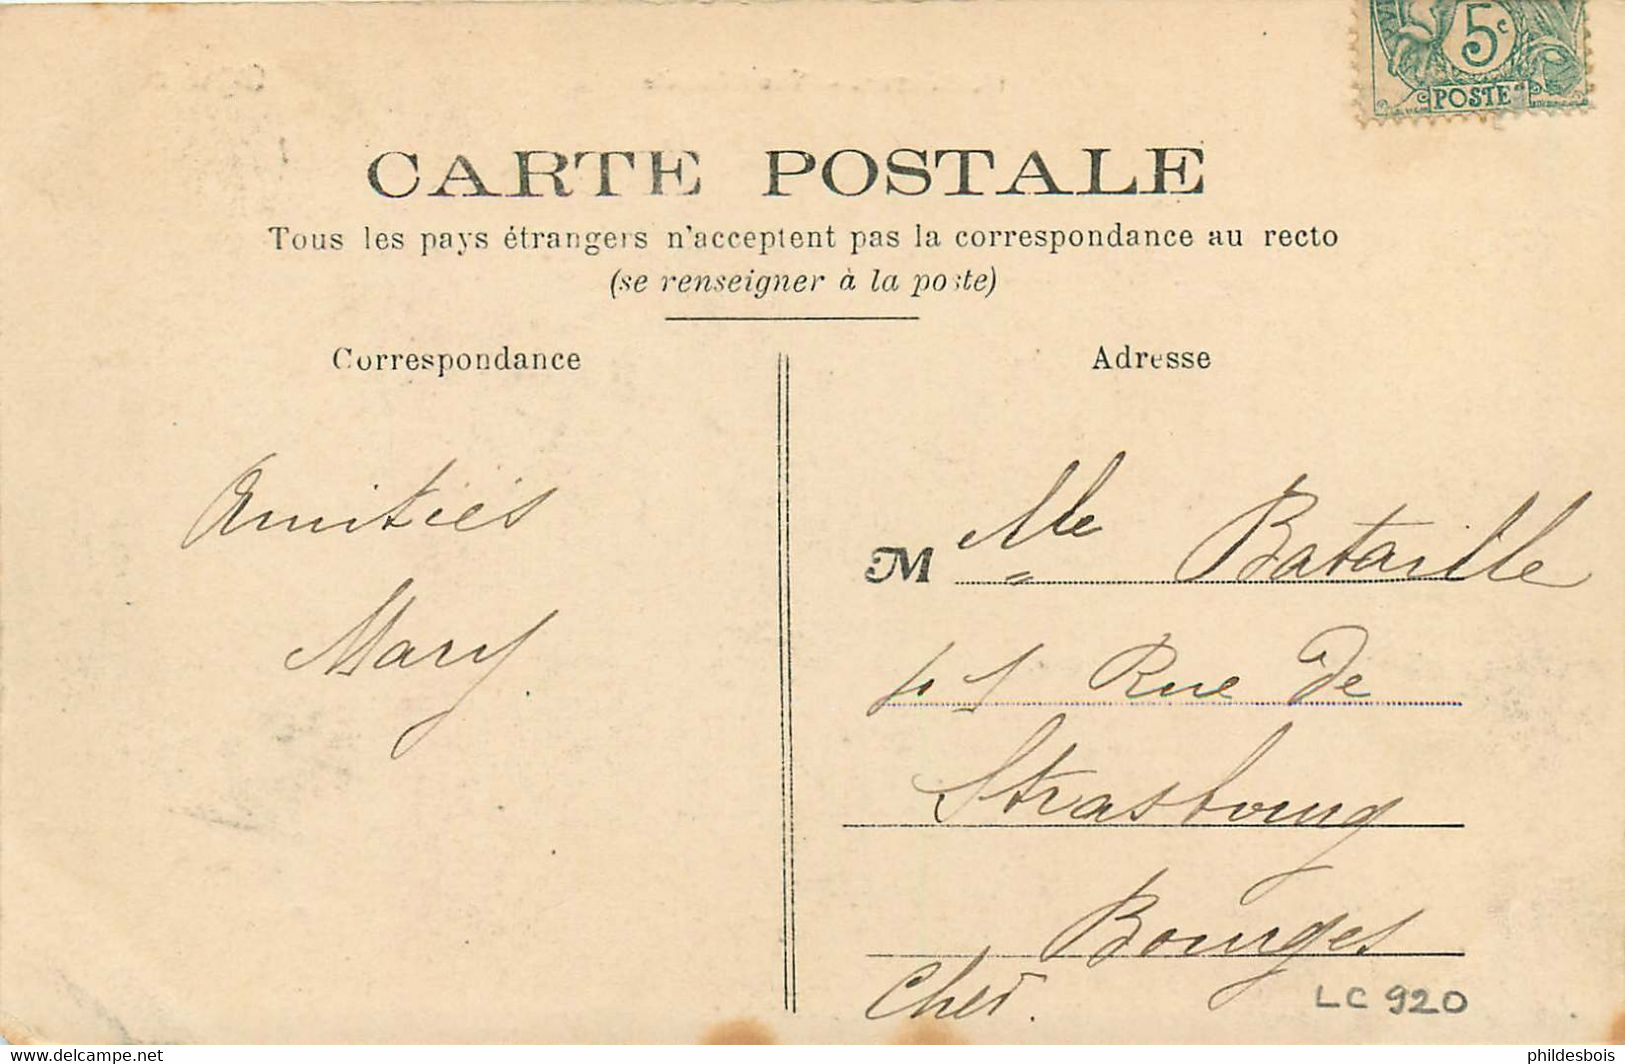 5c
POSTE
CARTE POSTALE
Tous les pays étrangers n'acceptent pas la correspondance au recto
(se renseigner à la poste)
Correspondance
Amitiés
Mary
Adresse
M Mlle Bataille
41 Rue de
Strasbourg
Bourges
Cher.
LC 920
www.delcampe.net
phildesbois